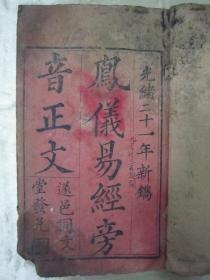 光緒二十一年新鐫
鳳儀易經旁
音正文
遂邑同文
堂發兌